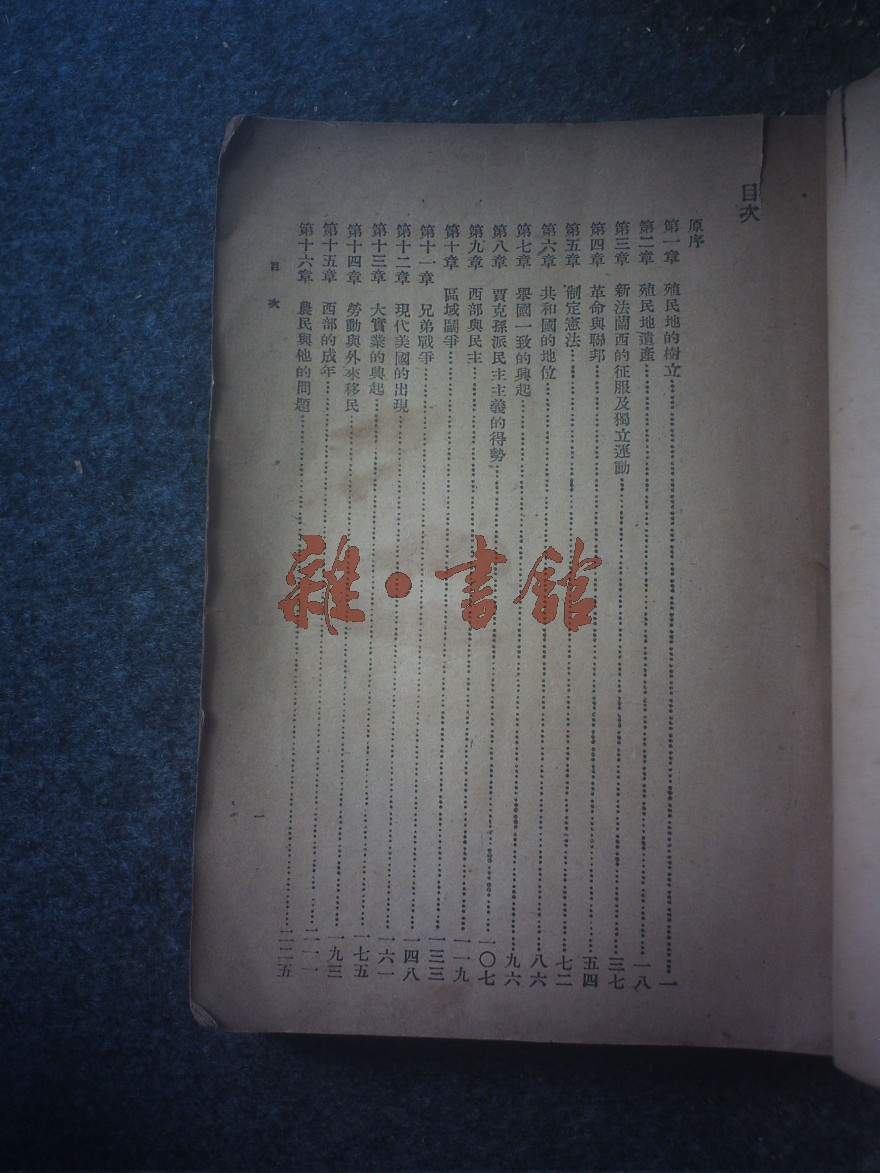 目次
原序
第一章 殖民地的樹立……一
第二章 殖民地遺產……一八
第三章 新法蘭西的征服及獨立運動……三七
第四章 革命與聯邦……五四
第五章 制定憲法……七二
第六章 共和國的地位……八六
第七章 舉國一致的興起……九六
第八章 賈克孫派民主主義的得勢……一〇七
第九章 西部與民主……一一九
第十章 區域鬭爭……一三三
第十一章 兄弟戰爭……一四八
第十二章 現代美國的出現……一六一
第十三章 大實業的興起……一七五
第十四章 勞動與外來移民……一九三
第十五章 西部的成年……二一一
第十六章 農民與他的問題……二二五
目次
一
雜·書館